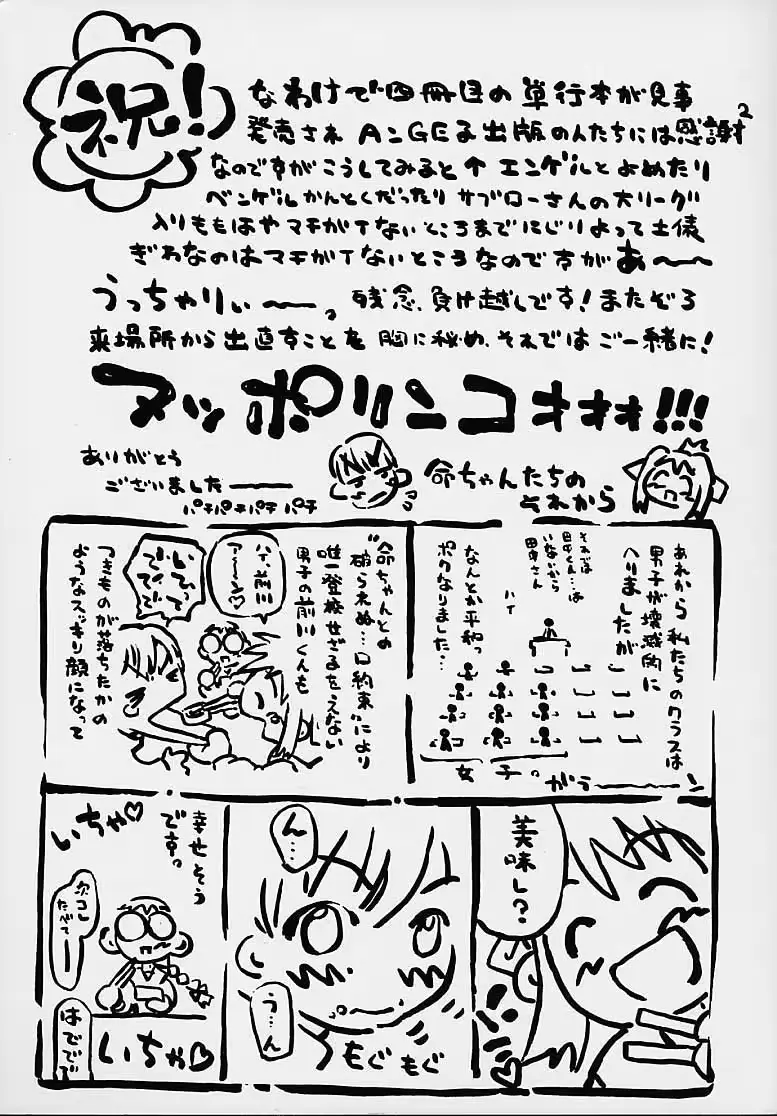 祝!
なわけで四冊目の単行本が見事
発売され AンGEる出版の人たちには感謝2
なのですがこうしてみると↑エンゲルとよめたり
ベンゲルかんとくだったり サブローさんの大リーグ
入りももはやマチガイないところまでにじりよって土俵
ぎわなのはマチガイないところなのですがあ〜〜
うっちゃりぃーーっ 残念、負け越しです!またぞろ
来場所から出直すことを胸に秘め、それではご一緒に!
マッポリンコオオォ!!!
ありがとう
ございましたーー
パチパチパチパチ
命ちゃんたちの
それから
あれから私たちのクラスは
男子が壊滅的に
へりましたが
それでは
田中くん…は
いないから
田中さん
ハイ
なんとか平和っ
ポクなりました…
女子っ
がらーーーン
"命ちゃんとの
破られぬ…口約束"により
唯一登校せざるをえない
男子の前川くんも
ハイ、前川
ア〜〜ン♡
つきものが落ちたかの
ようなスッキリ顔になって
美味し?
ん…
う…ん
もぐもぐ
幸せそう
ですっ
いちゃ♡
次コレ
たべてー
はででで
いちゃ♡